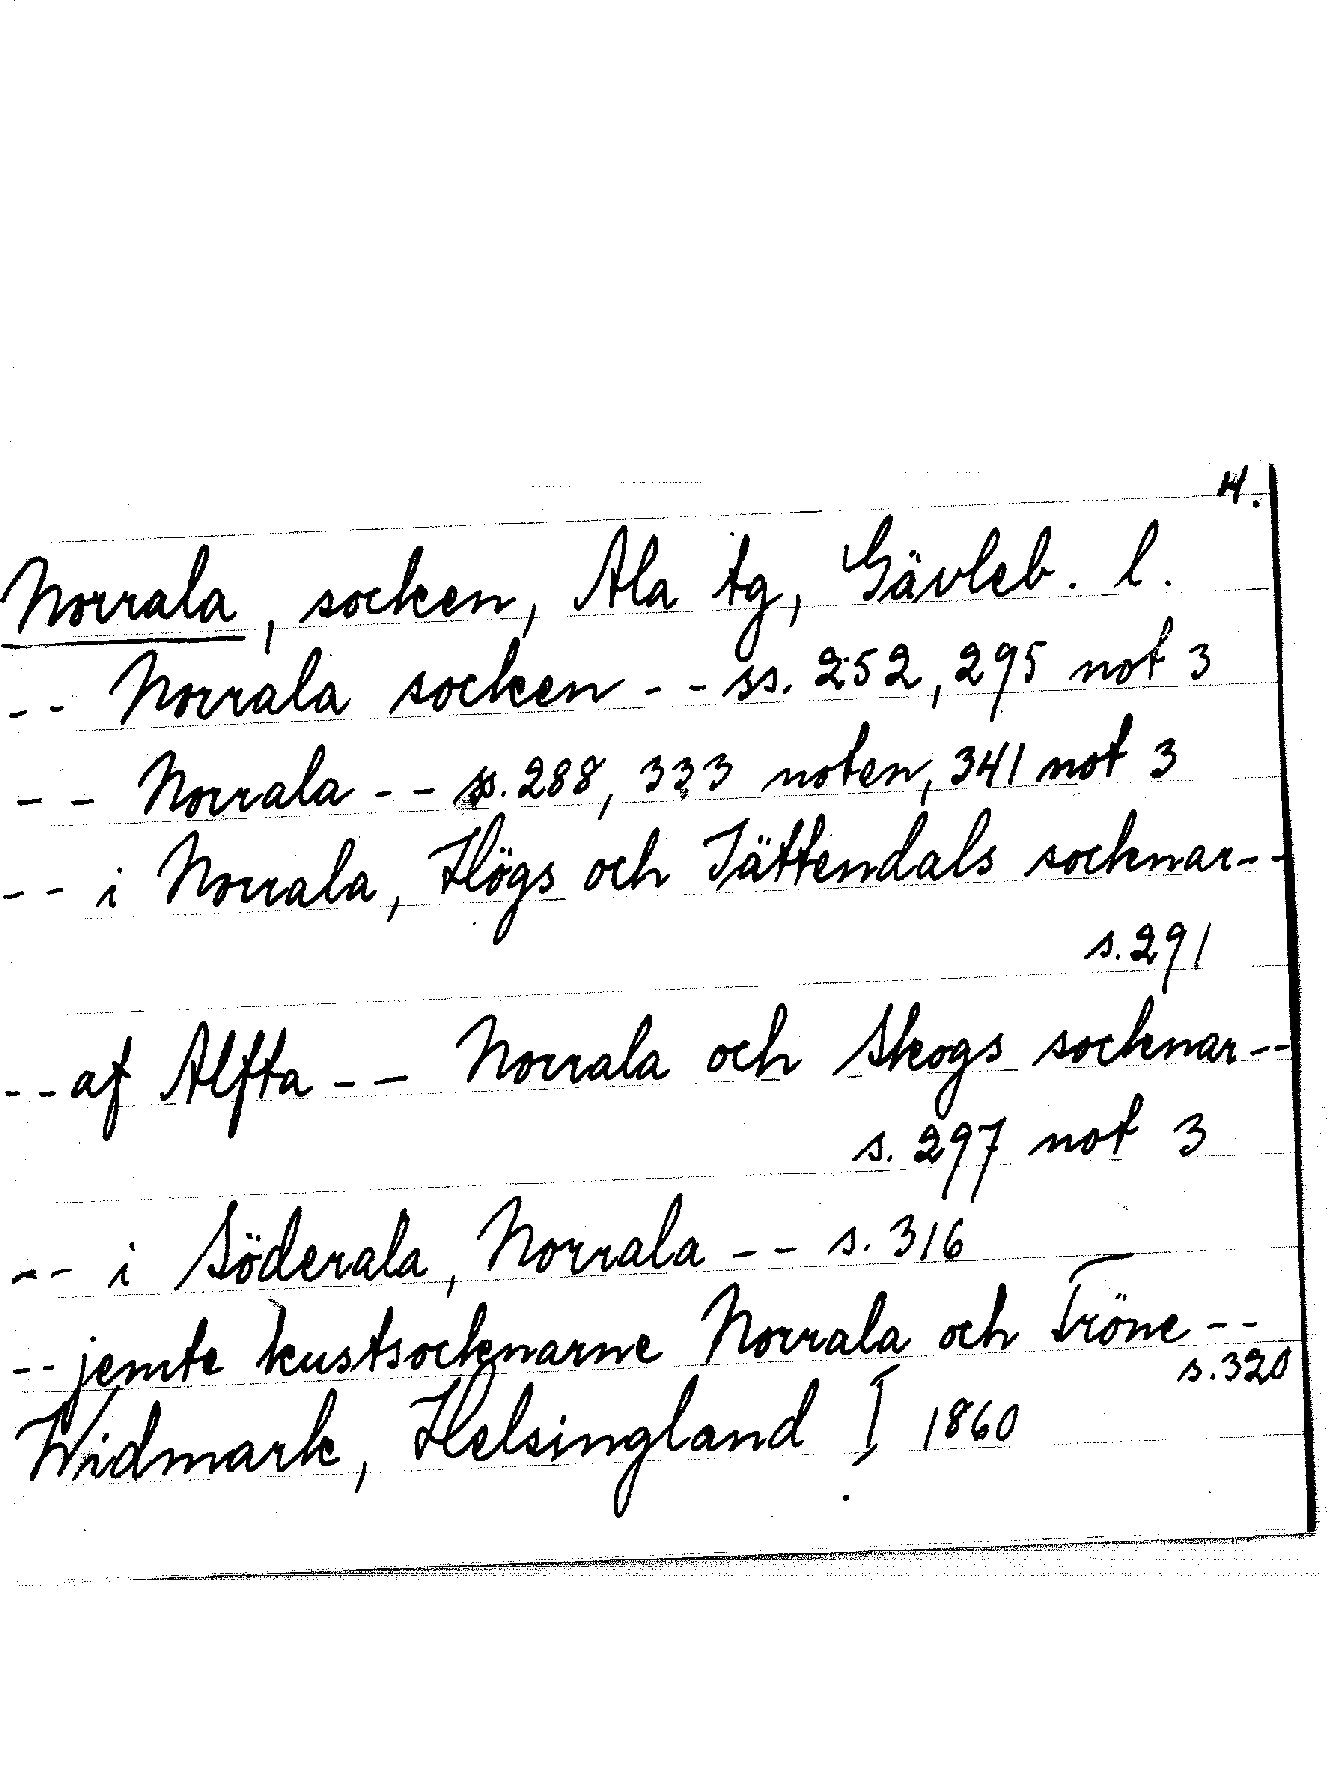 4.
Norrala, socken, Ala tg, Gävleb. l.
-- Norrala socken -- ss. 252, 295 not 3
-- Norrala -- ss. 288, 333 noten, 341 not 3
-- i Norrala, Högs och Jättendals socknar--
s. 291
-- af Alfta -- Norrala och Skogs socknar--
s. 297 not 3
-- i Söderala, Norrala -- s. 316
-- jemte kustsocknarne Norrala och Tröne --
s. 320
Widmark, Helsingland I 1860